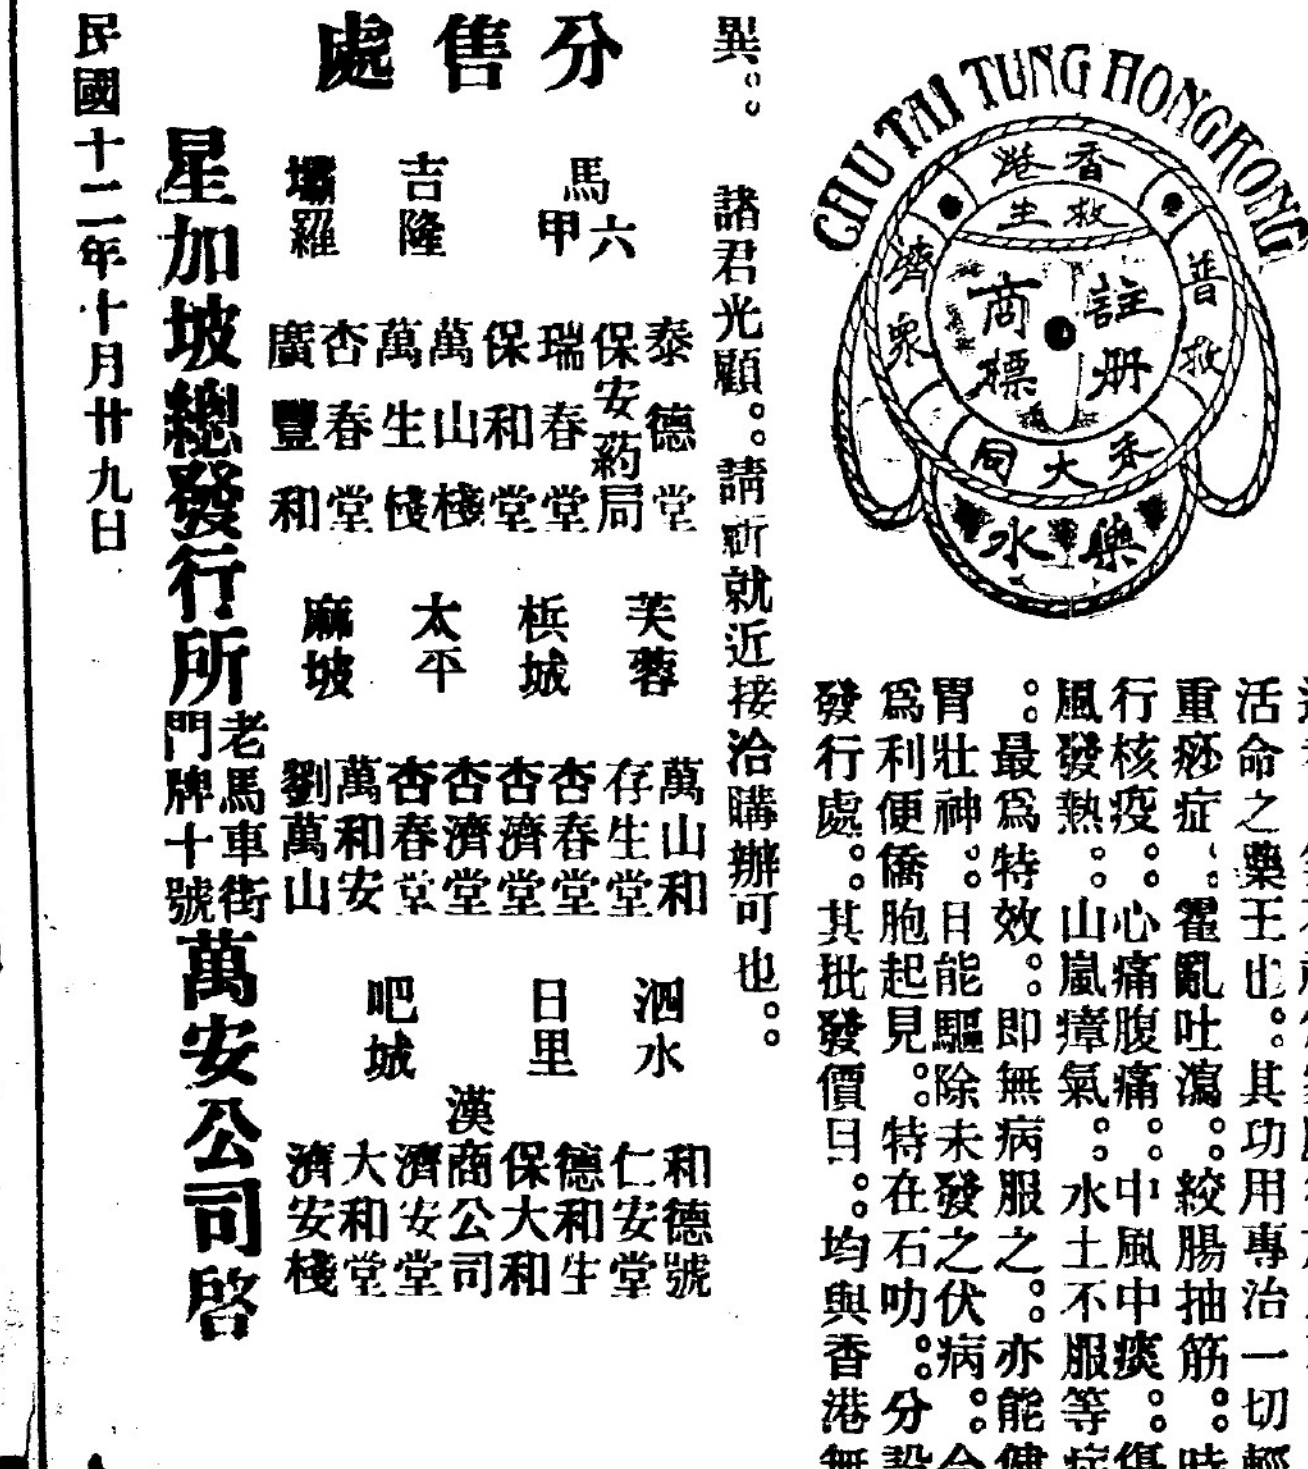 CHU TAI TUNG HONGKONG
香港
救生
普救
濟衆
註册
商標
大同
藥水
活命之藥王也。其功用專治一切輕
重痧症。霍亂吐瀉。絞腸抽筋。時
行核疫。心痛腹痛。中風中痰。傷
風發熱。山嵐瘴氣。水土不服等症
。最爲特效。即無病服之。亦能健
胃壯神。日能驅除未發之伏病。今
爲利便僑胞起見。特在石叻。分設
發行處。其批發價目。均與香港無
異。。諸君光顧。。請祈就近接洽購辦可也。。
分售處
馬六甲
泰德堂
保安葯局
瑞春堂
保和堂
吉隆
萬山棧
萬生棧
壩羅
杏春堂
廣豐和
芙蓉
萬山和
存生堂
梹城
杏春堂
杏濟堂
太平
杏濟堂
杏春堂
麻坡
萬和安
劉萬山
泗水
和德號
仁安堂
日里
德和生
保大和
漢商公司
吧城
濟安堂
大和堂
濟安棧
星加坡總發行所
老馬車街
門牌十號
萬安公司啓
民國十二年十月廿九日